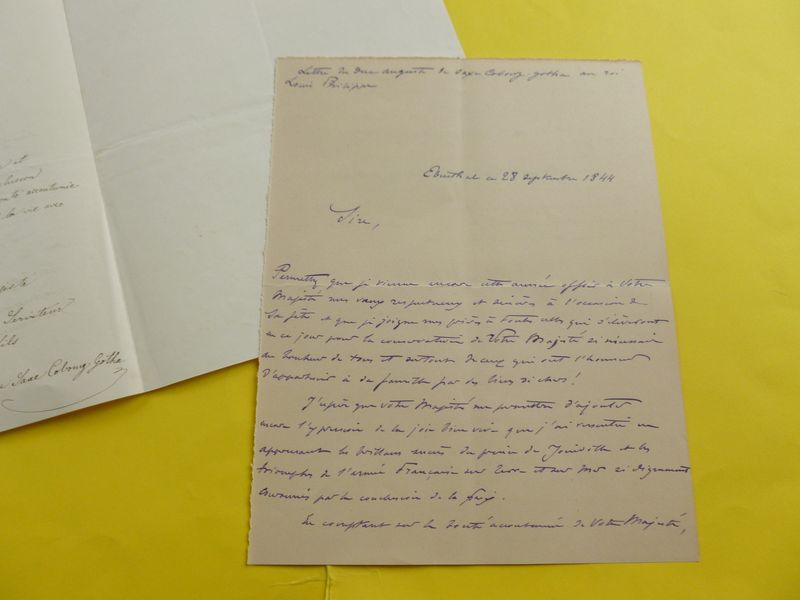 et
lusion
onté accoutumée
la vie avec
Serviteur
fils
Saxe Cobourg-Gotha
Lettre du Duc Auguste de Saxe Cobourg-Gotha au roi
Louis Philippe
Ebenthal ce 28 septembre 1844
Sire,
Permettez que je vienne encore cette année offrir à Votre
Majesté mes vœux respectueux et sincères à l'occasion de
Sa fête et que je joigne mes prières à toutes celles qui s'élèveront
en ce jour pour la conservation de Votre Majesté si nécessaire
au bonheur de tous et surtout de ceux qui ont l'honneur
d'appartenir à Sa famille par des liens si chers!
J'espère que Votre Majesté me permettra d'ajouter
encore l'expression de la joie bien vive que j'ai ressentie en
apprenant les brillans succès du prince de Joinville et les
triomphes de l'armée Française sur terre et sur mer si dignement
couronnés par la conclusion de la paix.
En comptant sur la bonté accoutumée de Votre Majesté,